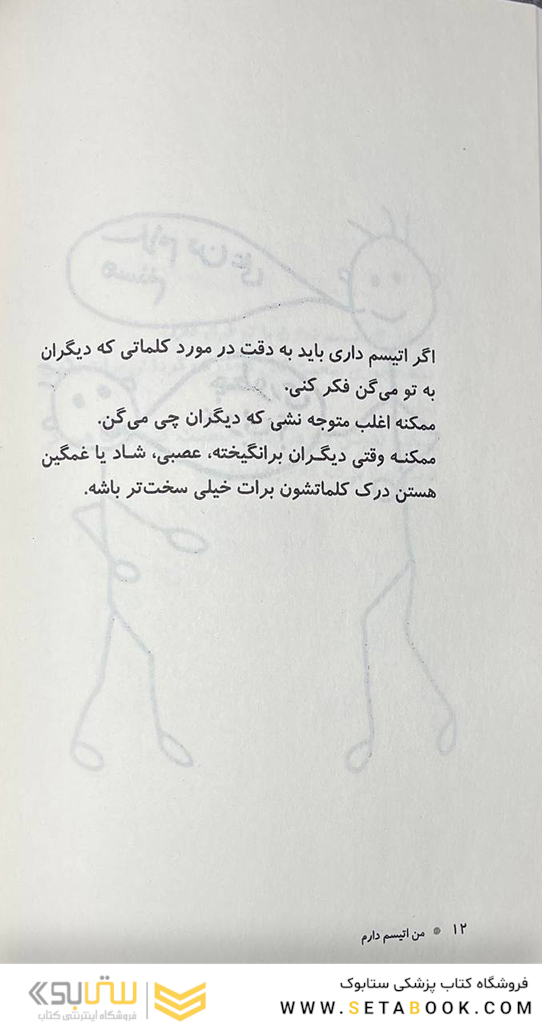 اگر اتیسم داری باید به دقت در مورد کلماتی که دیگران
به تو می‌گن فکر کنی.
ممکنه اغلب متوجه نشی که دیگران چی می‌گن.
ممکنه وقتی دیگران برانگیخته، عصبی، شاد یا غمگین
هستن درک کلماتشون برات خیلی سخت‌تر باشه.
۱۲ • من اتیسم دارم
فروشگاه کتاب پزشکی ستابوک
WWW.SETABOOK.COM
ستابوک
فروشگاه اینترنتی کتاب